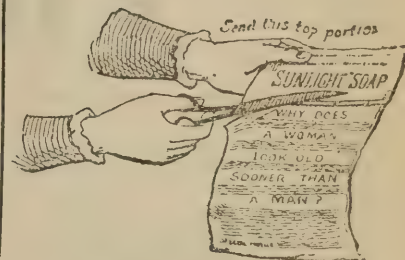 Send this top portion
SUNLIGHT SOAP
WHY DOES
A WOMAN
LOOK OLD
SOONER THAN
A MAN?